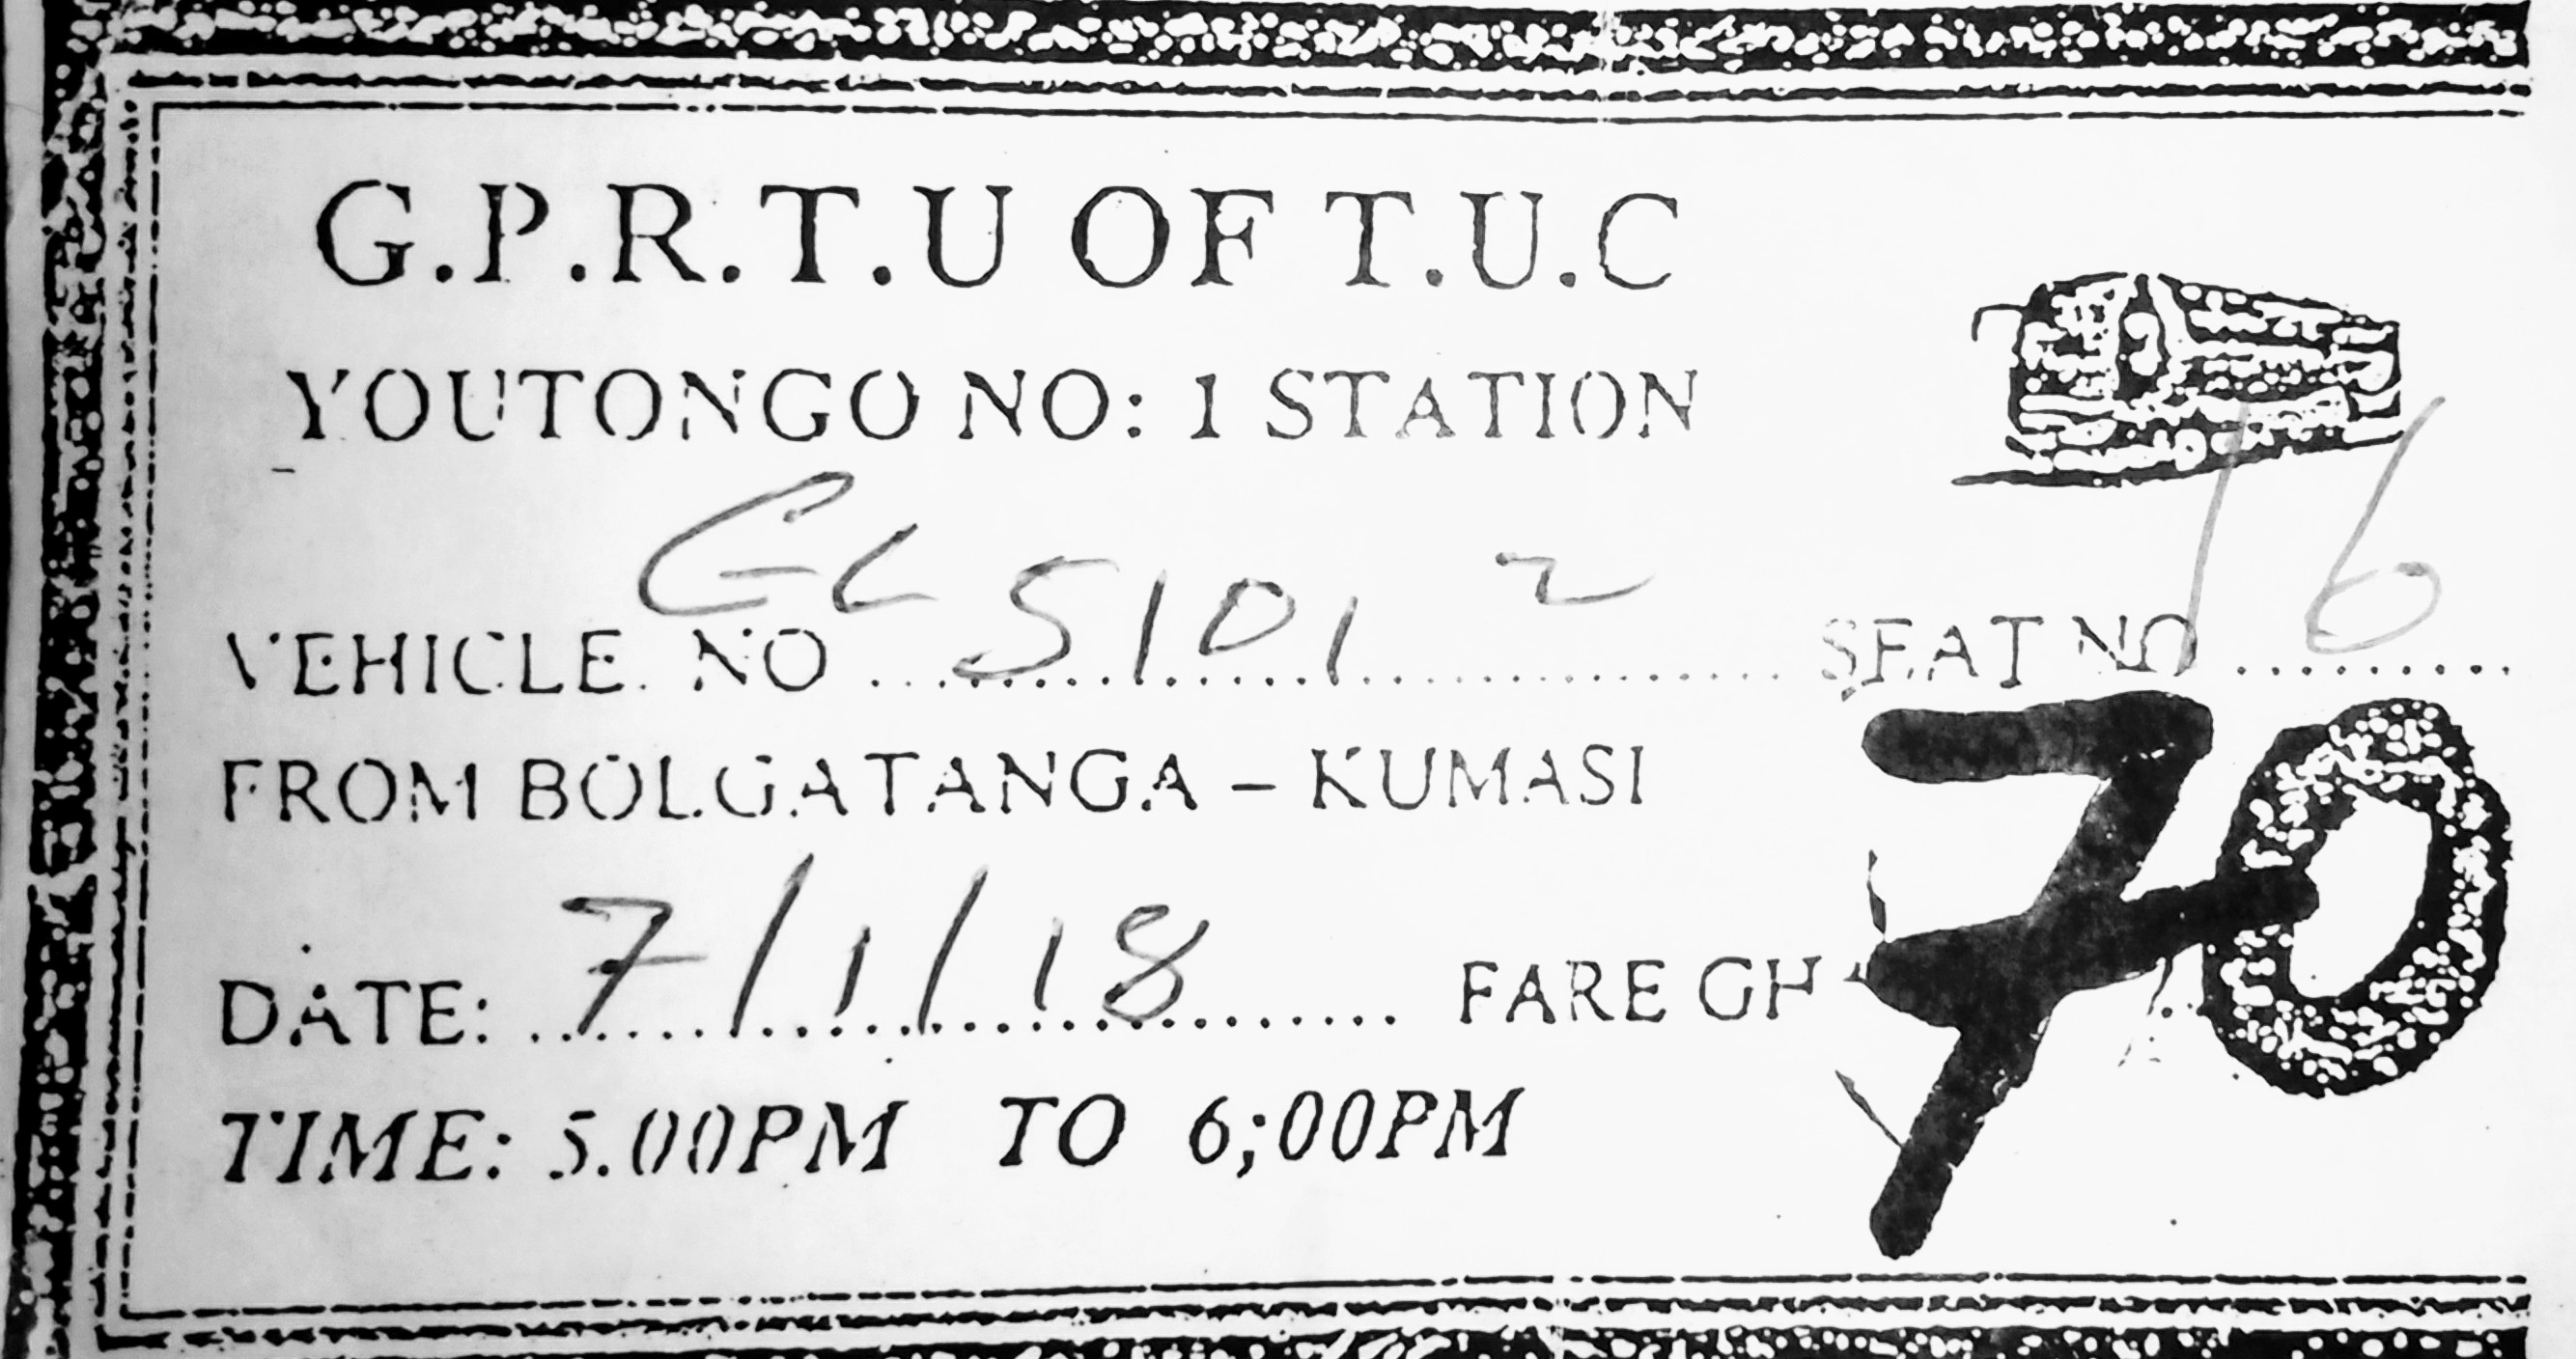 G.P.R.T.U OF T.U.C
YOUTONGO NO: 1 STATION
VEHICLE. NO GC 5101 2 SEAT NO 16
FROM BOLGATANGA – KUMASI
DATE: 7/1/18 FARE GH 70
TIME: 5.00PM TO 6;00PM